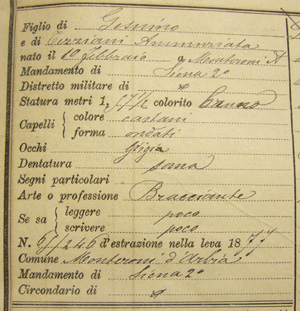 Figlio di Gesuino
e di Terziani Annunziata
nato il 10 Febbraio a Monteroni A
Mandamento di Siena 2º
Distretto militare di
Statura metri 1, 71½ colorito bruno
Capelli { colore castani
forma ondati
Occhi Grigi
Dentatura sana
Segni particolari
Arte o professione Bracciante
Se sa { leggere poco
scrivere poco
N. d'estrazione nella leva 1877
Comune Monteroni d'Arbia
Mandamento di Siena 2º
Circondario di